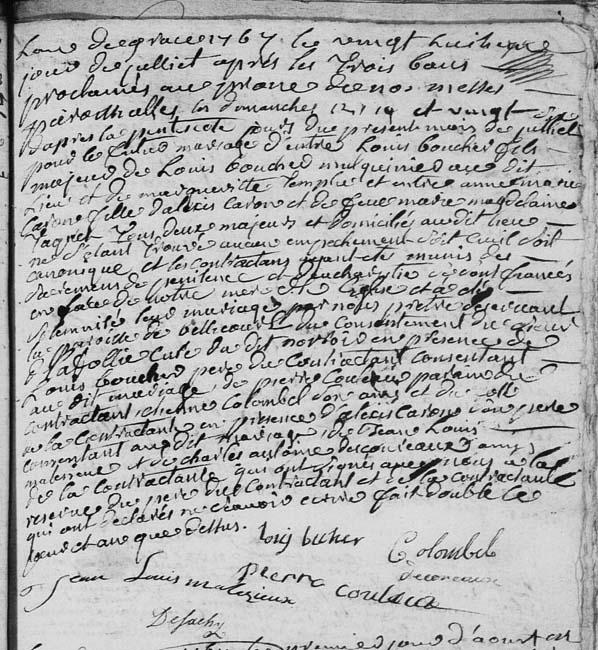 L'an de grace 1767 le vingt huitieme
jour de julliet apres les trois bans
prochamés au prone de nos messes
parochialles les dimanches 12, 19 et vingt six
d'après la pentecote jours du present mois de julliet
pour le futur mariage d'entre Louis boucher fils
majeur de Louis boucher mulquinier au dit
lieu et de margueritte Templier et entre anne marie
Caron fille d'alexis Caron et de feue marie magdelaine
Jaquet tous deux majeurs et domiciliés au dit lieu
ne s'étant trouvé aucun empechement soit civil soit
canonique et les contractans ayant été munis des
sacremens de penitence et d'eucharistie se sont fiancés
en face de notre mere Ste Eglise et a été
solemnisé leur mariage par nous pretre desservant
la paroisse de du consentement de sieur
Curé du dit en presence de
Louis boucher pere du Contractant consentant
au dit mariage, de pierre parain du
contractant, etienne Colombel son amis et du coté
de la Contractante en presence d'alexis Caron son pere
consentant au dit mariage, de Jean Louis
malezieux et de charles amis
de la contractante qui ont signés avec nous a la
reserve du pere du Contractant et de la contractante
qui ont declarés ne scavoir ecrire fait double le
jour et an que dessus.
Colombel
pierre
Jean Louis malezieux
Desachy
premier jour d'aoust